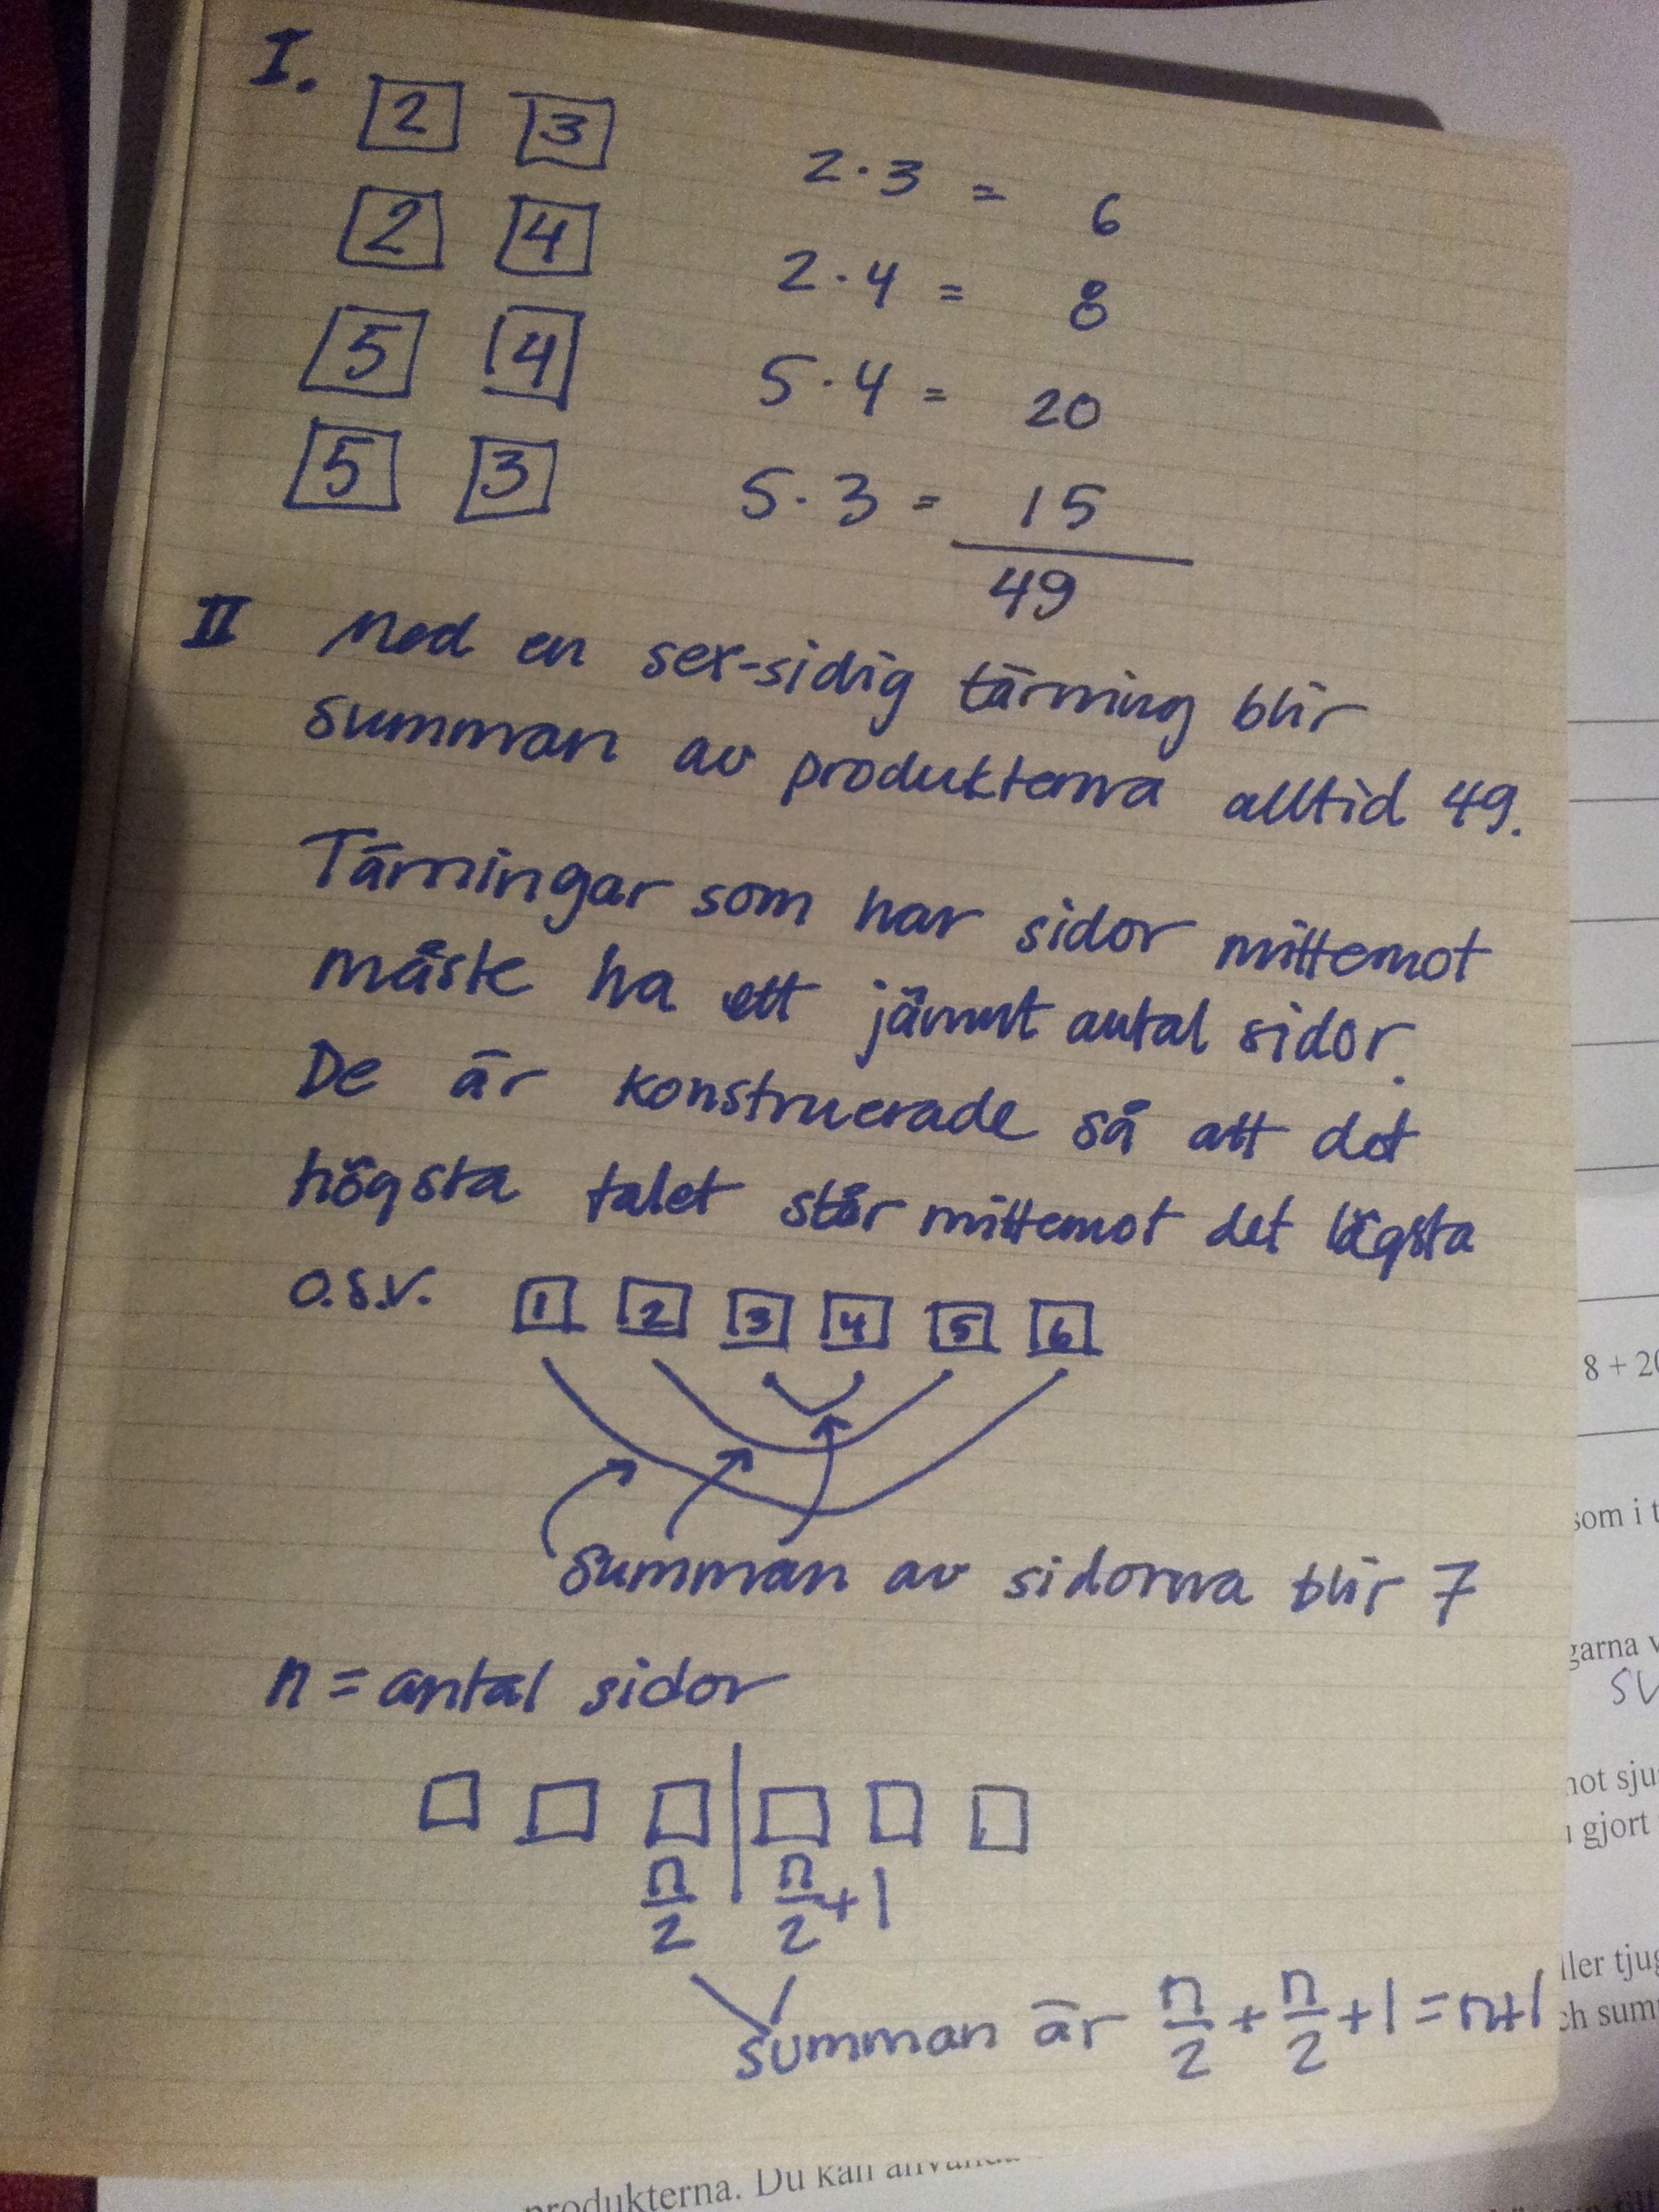 I.
2 3 2·3 = 6
2 4 2·4 = 8
5 4 5·4 = 20
5 3 5·3 = 15
49
II Med en sex-sidig tärning blir
summan av produkterna alltid 49.
Tärningar som har sidor mittemot
måste ha ett jämnt antal sidor.
De är konstruerade så att det
högsta talet står mittemot det lägsta
o.s.v. 1 2 3 4 5 6
summan av sidorna blir 7
n = antal sidor
n/2 n/2+1
summan är n/2 + n/2 + 1 = n+1
8 + 20
som i t
garna v
sv
not sju
gjort
ller tjug
ch sum
produkterna. Du kan använda